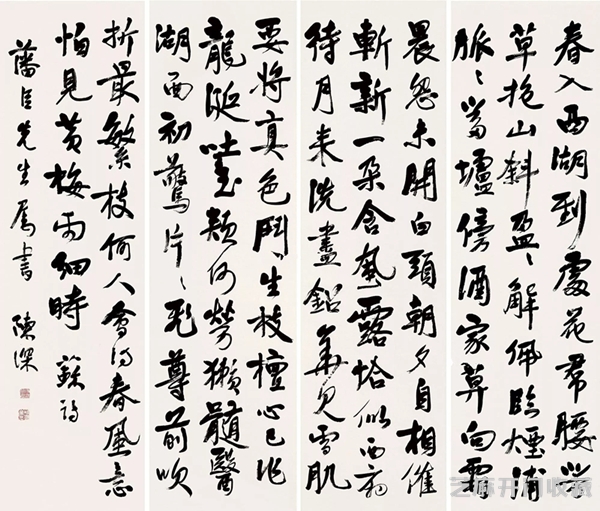 春入西湖到處花帬腰芳
草抱山斜盈〻解佩臨煙浦
脈〻當壚傍酒家莫向霜
晨怨未開白頭朝夕自相催
斬新一朶含風露恰似西廂
待月來洗盡鉛華見雪肌
要將真色鬥生枝檀心已作
龍涎吐玉頰何勞獺髓醫
湖面初驚片〻飛尊前吹
折最繁枝何人會得春風意
怕見黃梅雨細時 蘇詩
藩臣先生屬書 陳
芝麻开门收藏